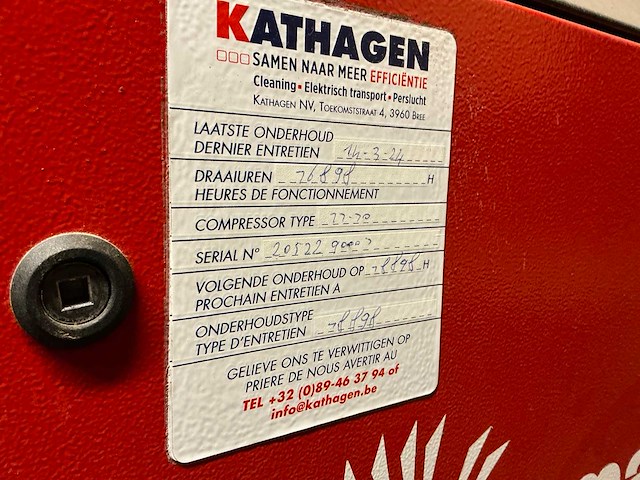 KATHAGEN
SAMEN NAAR MEER EFFICIËNTIE
Cleaning • Elektrisch transport • Perslucht
KATHAGEN NV, TOEKOMSTSTRAAT 4, 3960 BREE
LAATSTE ONDERHOUD
DERNIER ENTRETIEN 14-3-24
DRAAIUREN 76898 H
HEURES DE FONCTIONNEMENT
COMPRESSOR TYPE
SERIAL N°
VOLGENDE ONDERHOUD OP 78898 H
PROCHAIN ENTRETIEN A
ONDERHOUDSTYPE
TYPE D'ENTRETIEN 78898
GELIEVE ONS TE VERWITTIGEN OP
PRIERE DE NOUS AVERTIR AU
TEL +32 (0)89-46 37 94 of
info@kathagen.be